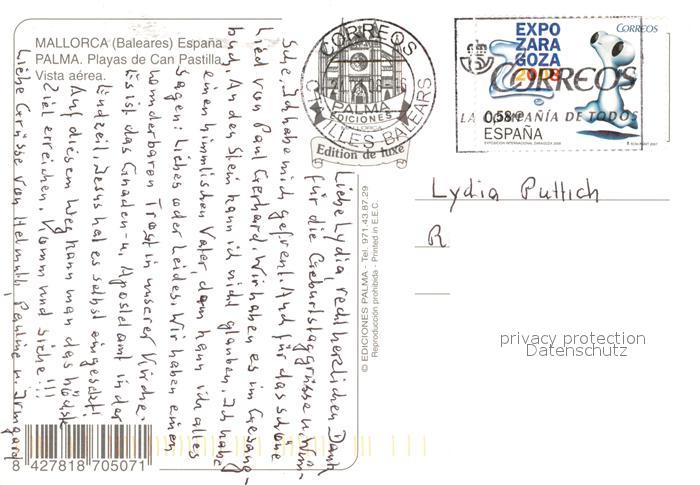 MALLORCA (Baleares) España
PALMA. Playas de Can Pastilla.
Vista aérea.
CORREOS
PALMA
ILLES BALEARS
EDICIONES
PALMA
MALLORCA
Edition de luxe
EXPO
ZARA
GOZA
2008
CORREOS
CORREOS
LA COMPAÑÍA DE TODOS
0,58€
ESPAÑA
EXPOSICION INTERNACIONAL ZARAGOZA 2008
Liebe Lydia, recht herzlichen Dank
für die Geburtstaggrüsse u. Wün-
sche. Ich habe mich gefreut. Auch für das schöne
Lied von Paul Gerhard. Wir haben es im Gesang-
bud. An den Stein kann ich nicht glauben. Ich habe
einen himmlischen Vater, dem kann ich alles
sagen: Liebes oder Leides. Wir haben einen
wunderbaren Trost in unserer Kirche.
Es ist das Gnaden- u. Apostelamt in der
Endzeit. Jesus hat es selbst eingesetzt!
Auf diesem Weg kann man das höchste
Ziel erreichen. Komm und siehe!!!
Liebe Grüsse von Helmut, Pauline u. Irmgard
© EDICIONES PALMA - Tel. 971.43.87.29
Reproducción prohibida - Printed in E.E.C.
Lydia Puttich
R
privacy protection
Datenschutz
8 427818 705071